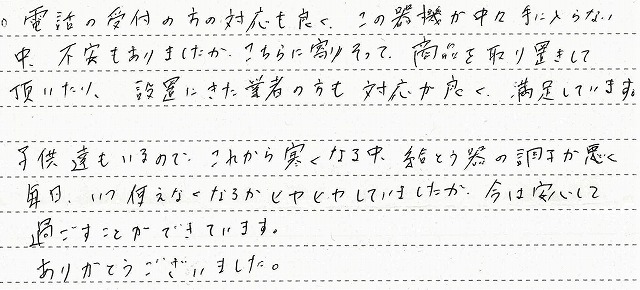 。電話の受付の方の対応も良く、この器機が中々手に入らない
中、不安もありましたが、こちらに寄りそって、商品を取り置きして
頂いたり、設置にきた業者の方も対応が良く、満足しています。
子供達もいるので、これから寒くなる中、給とう器の調子が悪く
毎日、いつ使えなくなるかヒヤヒヤしていましたが、今は安心して
過ごすことができています。
ありがとうございました。